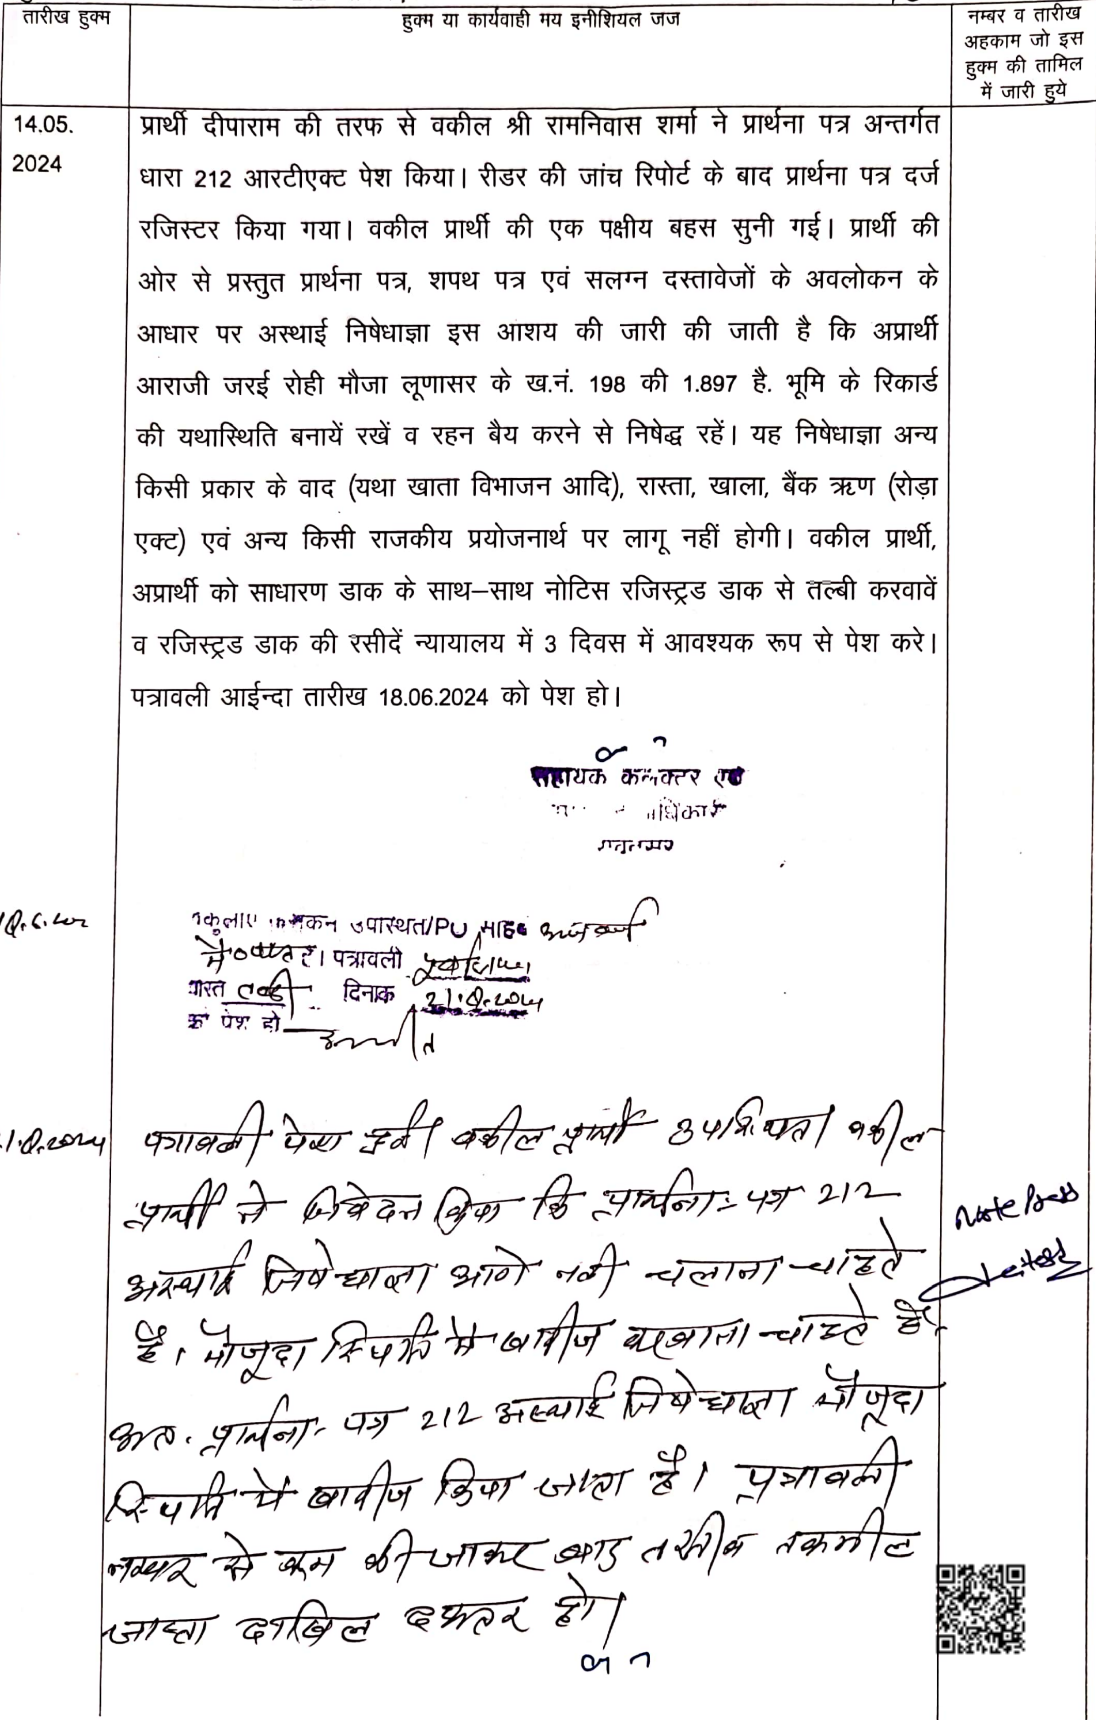 तारीख हुक्म
हुक्म या कार्यवाही मय इनीशियल जज
नम्बर व तारीख
अहकाम जो इस
हुक्म की तामिल
में जारी हुये
14.05.
2024
प्रार्थी दीपाराम की तरफ से वकील श्री रामनिवास शर्मा ने प्रार्थना पत्र अन्तर्गत
धारा 212 आरटीएक्ट पेश किया। रीडर की जांच रिपोर्ट के बाद प्रार्थना पत्र दर्ज
रजिस्टर किया गया। वकील प्रार्थी की एक पक्षीय बहस सुनी गई। प्रार्थी की
ओर से प्रस्तुत प्रार्थना पत्र, शपथ पत्र एवं सलग्न दस्तावेजों के अवलोकन के
आधार पर अस्थाई निषेधाज्ञा इस आशय की जारी की जाती है कि अप्रार्थी
आराजी जरई रोही मौजा लूणासर के ख.नं. 198 की 1.897 है. भूमि के रिकार्ड
की यथास्थिति बनायें रखें व रहन बैय करने से निषेद्ध रहें। यह निषेधाज्ञा अन्य
किसी प्रकार के वाद (यथा खाता विभाजन आदि), रास्ता, खाला, बैंक ऋण (रोड़ा
एक्ट) एवं अन्य किसी राजकीय प्रयोजनार्थ पर लागू नहीं होगी। वकील प्रार्थी,
अप्रार्थी को साधारण डाक के साथ–साथ नोटिस रजिस्ट्रड डाक से तल्बी करवावें
व रजिस्ट्रड डाक की रसीदें न्यायालय में 3 दिवस में आवश्यक रूप से पेश करे।
पत्रावली आईन्दा तारीख 18.06.2024 को पेश हो।
सहायक कलेक्टर एवं
उपस्थित/PO
है। पत्रावली
दिनांक
को पेश हो
पत्रावली पेश हुई। वकील प्रार्थी उपस्थित। वकील
प्रार्थी ने निवेदन किया कि प्रार्थना-पत्र 212
अस्थाई निषेधाज्ञा आगे नही चलाना चाहते
है। मौजूदा स्थिति मे खारीज करवाना चाहते है।
अतः प्रार्थना-पत्र 212 अस्थाई निषेधाज्ञा मौजूदा
स्थिति में खारीज किया जाता है। पत्रावली
नम्बर से कम की जाकर बाद तकमील
जाब्ता दाखिल दफ्तर हो।